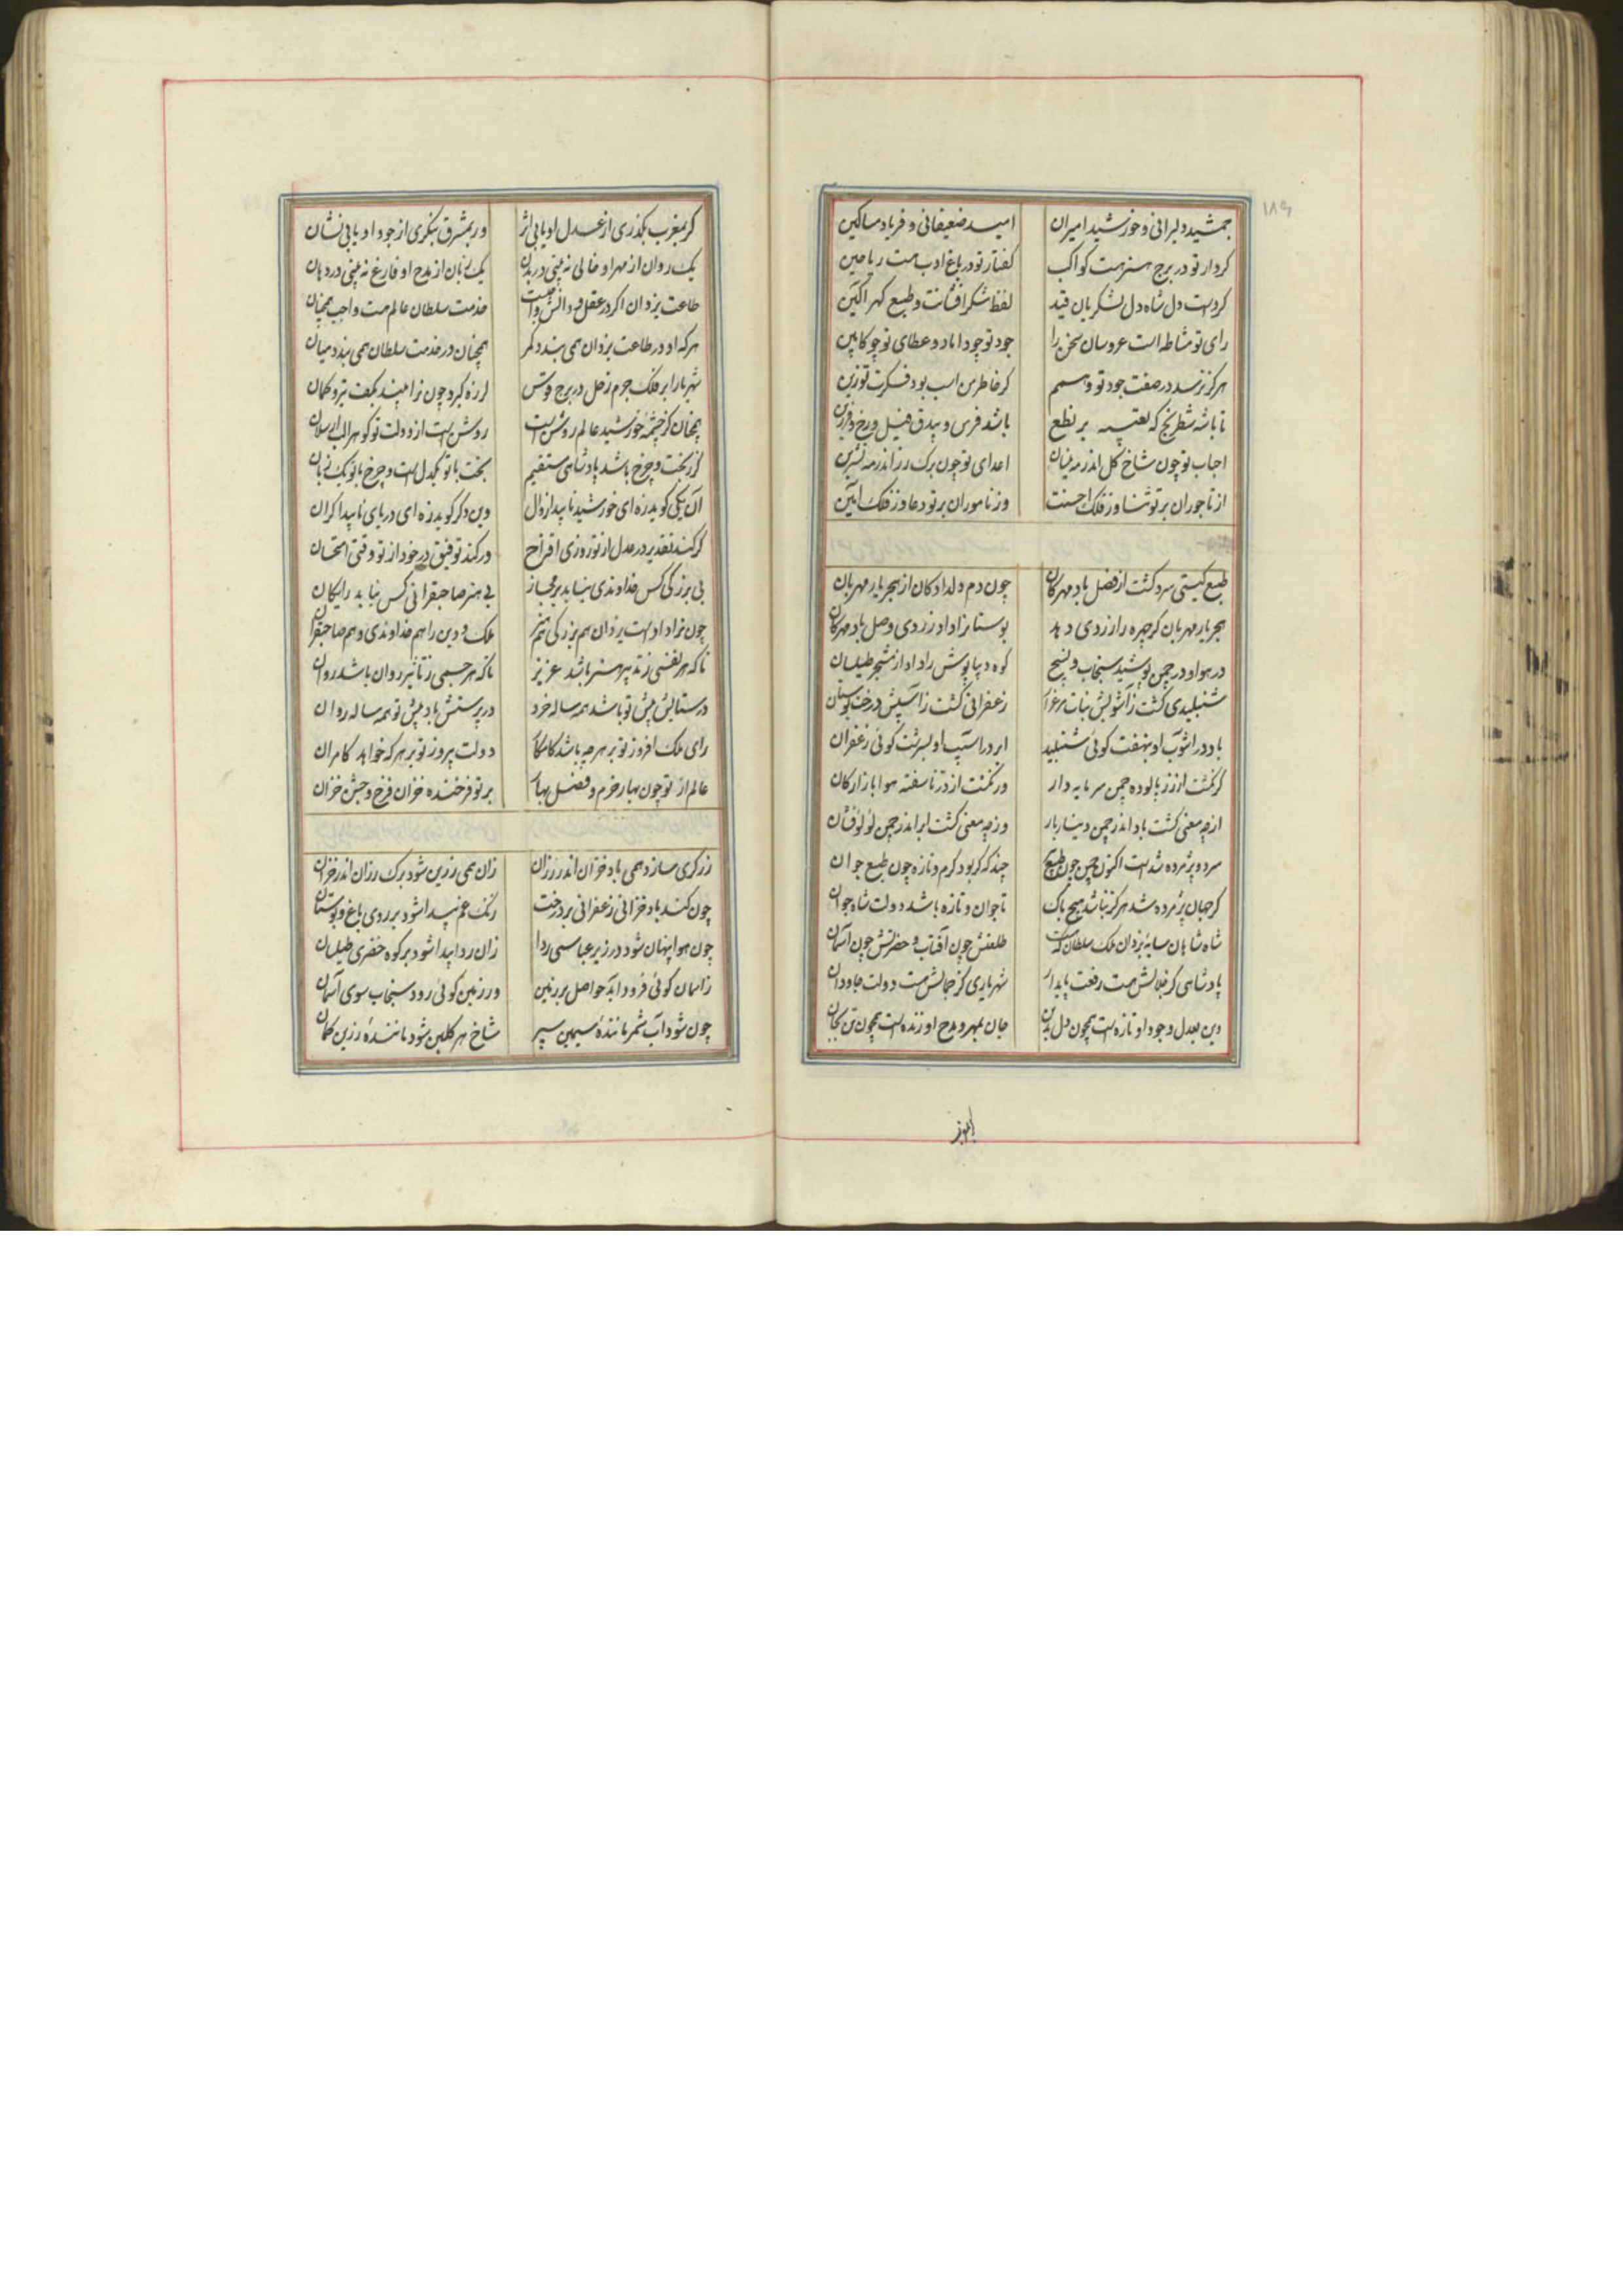 ۱۸۹
جمشید دلیرانی و خورشید امیران امید ضعیفانی و فریاد مساکین
کردار تو در برج هنر هست کواکب گفتار تو در باغ ادب هست ریاحین
کردست دل شاه دل لشکریان قید لفظ شکر افشانت و طبع گهر آگین
رای تو مشاطه است عروسان سخن را جود تو چو داماد و عطای تو چو کابین
هرگز نرسد در صفت جود تو وهم گر خاطرش اسب بود فکرت تو زین
تا باشه شطرنج که تعبیه بر نطع باشد فرس و بیدق و فیل و رخ و فرزین
احباب تو چون شاخ گل اندر مه نیسان اعدای تو چون برک رز اندر مه تشرین
از تاجوران بر تو ثنا وز فلک احسنت وز ناموران بر تو دعا وز فلک آمین
طبع گیتی سرد گشت از فضل باد مهرکان چون دم دلدادکان از هجر یار مهربان
هجر یار مهربان گر چهره را زردی دهد بوستانرا داد زردی وصل باد مهرکان
در هوا و در چمن پوشید سنجاب و نسیج کوه دیبا پوش را داد از مشجر طیلسان
شنبلیدی گشت ز آشوبش نبات مرغزار زعفرانی گشت ز آسیبش درخت بوستان
باد در آشوب او بنهفت گوئی شنبلید ابر در آسیب او بسرشت گوئی زعفران
گر نگشت از زر پالوده چمن سرمایه دار ور نگشت از در ناسفته هوا بازارکان
از چه معنی گشت باد اندر چمن دینار بار وز چه معنی گشت ابر اندر چمن لؤلؤ فشان
سرد و پژمرده شد است اکنون چمن چون طبع پیر چند که گر بود گرم و تازه چون طبع جوان
گر جهان پژمرده شد هرگز نباشد هیچ باک تا جوان و تازه باشد دولت شاه جوان
شاه شاهان سایه یزدان ملک سلطان که هست طلعتش چون آفتاب و حضرتش چون آسمان
پادشاهی کز جلالش هست رفعت پایدار شهریاری کز جمالش هست دولت جاودان
دین بعدل و جود او تازه است همچون دل بدین جان بمهر و مدح او زنده است همچون تن بجان
گر بمغرب بگذری از عدل او یابی اثر ور بمشرق بنگری از جود او یابی نشان
یک روان از مهر او خالی نه بینی در بدن یک زبان از مدح او فارغ نه بینی در دهان
طاعت یزدان اگر در عقل و دانش واجبست خدمت سلطان عالم هست واجب همچنان
هر که او در طاعت یزدان همی بندد کمر همچنان در خدمت سلطان همی بندد میان
شهریارا بر فلک جرم زحل در برج قوس لرزه گیرد چون ترا بیند بکف تیر و کمان
همچنان کز چشمه خورشید عالم روشن است روشن است از دولت تو گوهر الب ارسلان
گر ز بخت و چرخ باشد پادشاهی مستقیم بخت با تو یکدل است و چرخ با تو یک زبان
آن یکی گوید زه ای خورشید ناپیدا زوال وین دگر گوید زه ای دریای ناپیدا کران
گر کند تقدیر در عدل از تو روزی اقتراح ور کند توفیق در جود از تو وقتی امتحان
بی بزرگی کس خداوندی نیابد بر مجاز بی هنر صاحبقرانی کس نیابد رایگان
چون ترا دادست یزدان هم بزرگی هم هنر ملک و دین را هم خداوندی و هم صاحبقران
تا که هر نفسی ز تدبیر هنر باشد عزیز تا که هر جسمی ز تأثیر روان باشد روان
در ستایش پیش تو باشد همه ساله خرد در پرستش باد پیش تو همه ساله روان
رای ملک افروز تو بر هر چه باشد کامگار دولت پیروز تو بر هر که خواهد کامران
عالم از تو چون بهار خرم و فصل بهار بر تو فرخنده خزان فرخ و جشن خزان
زرگری سازد همی باد خزان اندر رزان زان همی زرین شود برک رزان اندر خزان
چون کند باد خزانی زعفرانی بر درخت رنگ غم پیدا شود بر روی باغ و بوستان
چون هوا پنهان شود در زیر عباسی ردا زان ردا پیدا شود بر کوه خضری طیلسان
ز اسمان گوئی فرود آید حواصل بر زمین ور زمین گوئی رود سنجاب سوی آسمان
چون شود آب شمر مانندهٔ سیمین سپر شاخ هر گلبن شود مانندهٔ زرین کمان